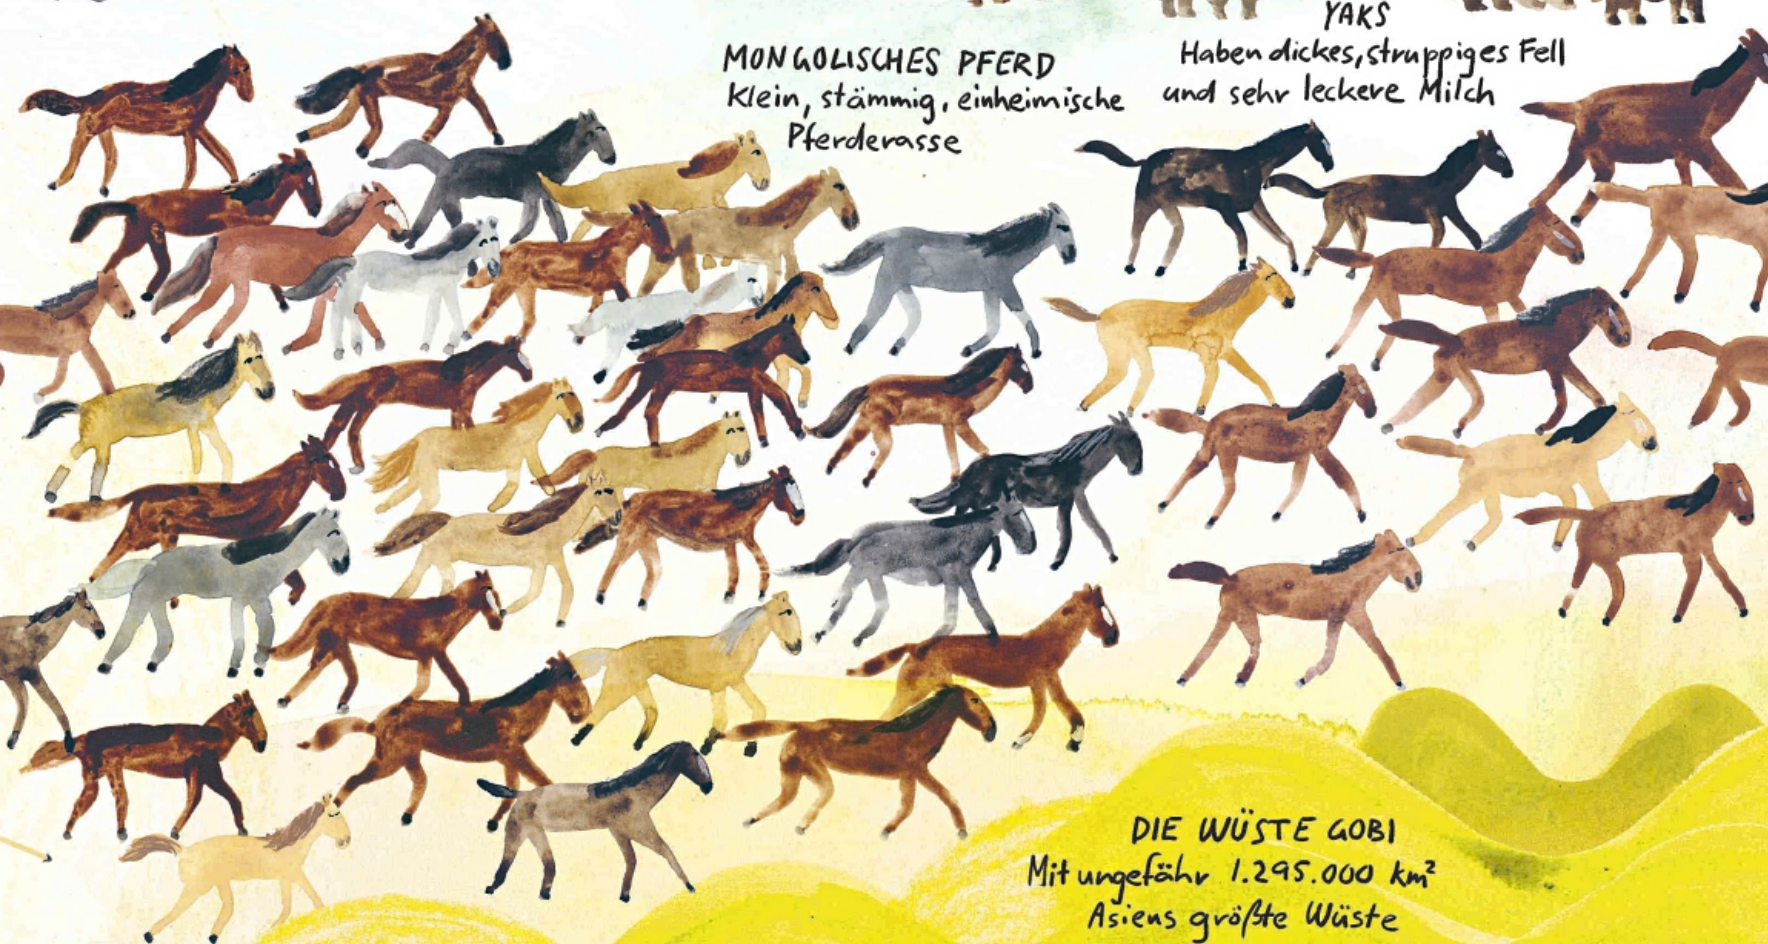 MONGOLISCHES PFERD
Klein, stämmig, einheimische
Pferderasse
YAKS
Haben dickes, struppiges Fell
und sehr leckere Milch
DIE WÜSTE GOBI
Mit ungefähr 1.295.000 km²
Asiens größte Wüste